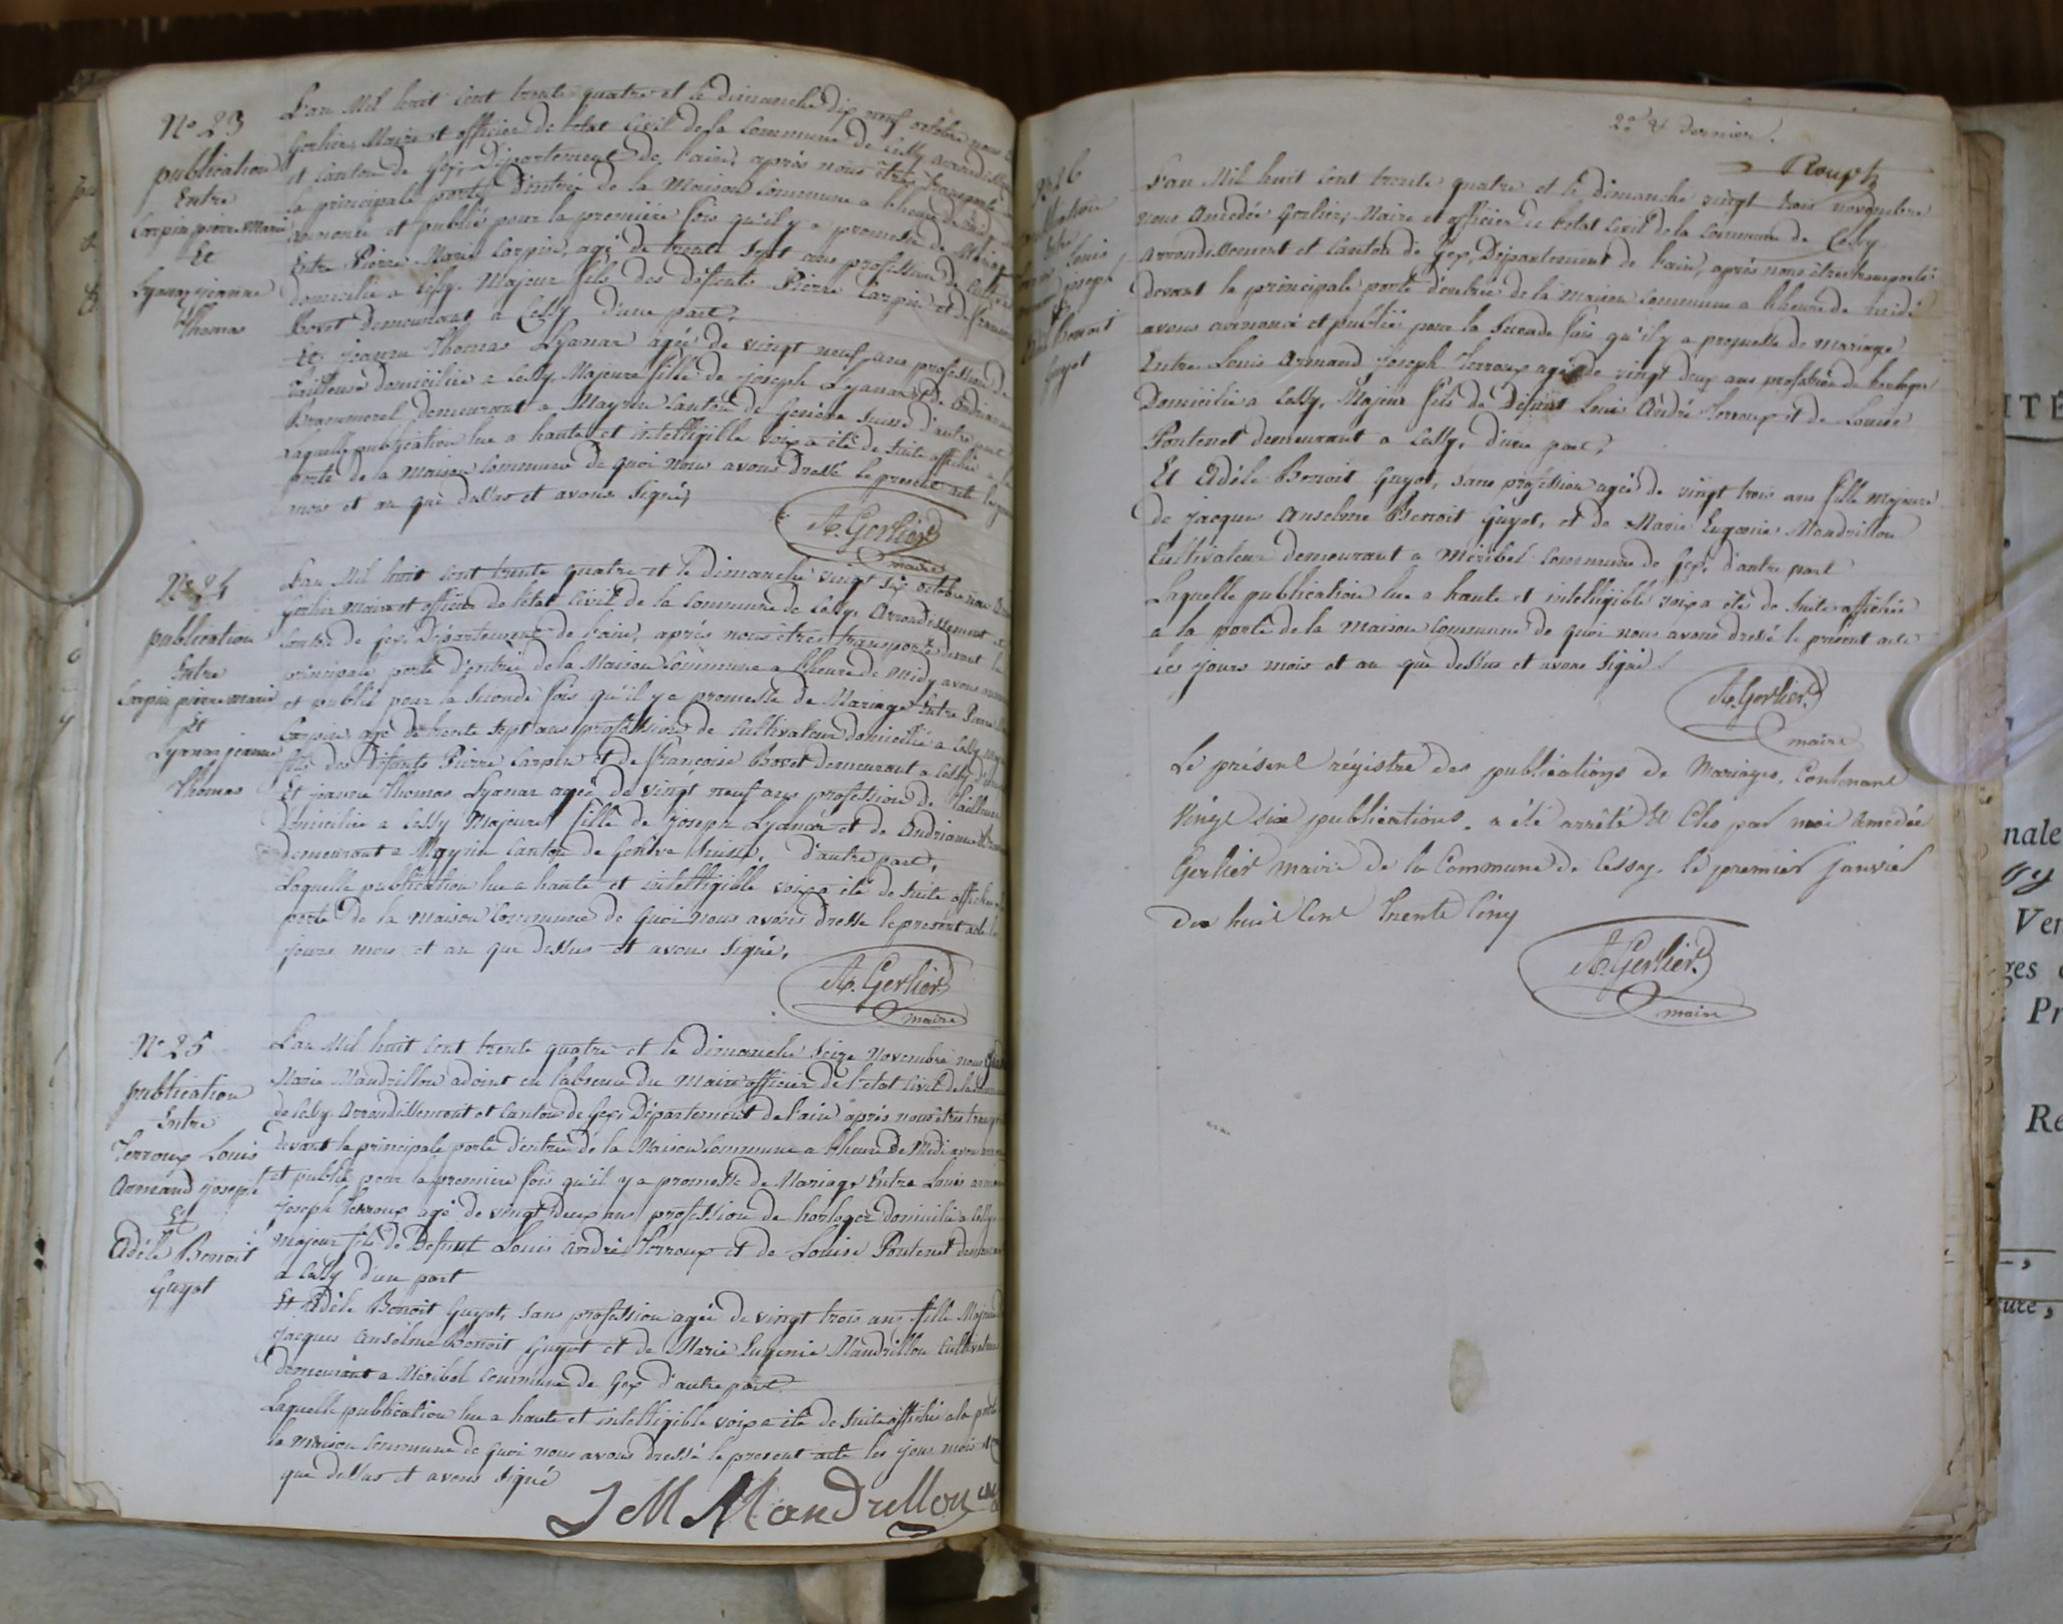 No 23
publication
Entre
Carpin pierre Marie
Et
Lyanaz jeanne
Thomas
L'an Mil huit Cent trente quatre et le dimanche dix neuf octobre nous
Gerlier, Maire et officier de l'etat Civil de la Commune de Cessy arrondissement
et Canton de Gex, Département de l'ain, après nous être transporté
la principale porte d'entrée de la Maison Commune a l'heure de midi
annoncé et publié pour la première fois qu'il y a promesse de Mariage
Entre Pierre Marie Carpin, agé de trente Sept ans profession de Cultivateur
domicilié a Cessy. Majeur fils des défunts Pierre Carpin et de françoise
Bovet demeurant a Cessy d'une part,
Et jeanne Thomas Lyanaz agée de vingt neuf ans profession de
Tailleuse domiciliée a Cessy, Majeure fille de joseph Lyanaz et de Andrianne
demeurant a Mayrin Canton de Genève Suisse d'autre part
Laquelle publication lue a haute et intelligible voix a été de Suite affichée a la
porte de la Maison Commune de quoi nous avons dressé le présent acte les jours
mois et an que dessus et avons Signé,
A. Gerlier
maire
No 24
publication
Entre
Carpin pierre marie
Et
Lyanaz jeanne
Thomas
L'an Mil huit Cent trente quatre et le dimanche vingt Six octobre nous
Gerlier Maire et officier de l'état Civil de la Commune de Cessy, Arrondissement et
Canton de Gex, Département de l'ain, après nous être transporté devant la
principale porte d'entrée de la Maison Commune a l'heure de Midy avons annoncé
et publié pour la Seconde fois qu'il y a promesse de Mariage Entre Pierre
Carpin agé de trente Sept ans profession de Cultivateur domicilié a Cessy
fils des Défunts Pierre Carpin et de françoise Bovet demeurant a Cessy d'une
Et jeanne Thomas Lyanaz agée de vingt neuf ans profession de Tailleuse
domiciliée a Cessy Majeure fille de joseph Lyanaz et de Andrianne
demeurant a Mayrin Canton de Genève Suisse, d'autre part,
Laquelle publication lue a haute et intelligible voix a été de Suite affichée a la
porte de la Maison Commune de quoi nous avons dressé le présent acte les
jours mois et an que dessus et avons Signé,
A. Gerlier
maire
No 25
publication
Entre
Terroux Louis
Armand joseph
Et
Adèle Benoit
Guyot
L'an Mil huit Cent trente quatre et le dimanche Seize Novembre nous
Marie Mandrillon adoint en l'absence du Maire officier de l'état Civil de la Commune
de Cessy Arrondissement et Canton de Gex, Département de l'ain après nous être transporté
devant la principale porte d'entrée de la Maison Commune a l'heure de Midi avons annoncé
et publié pour la première fois qu'il y a promesse de Mariage Entre Louis armand
joseph Terroux agé de vingt deux ans profession de horloger domicilié a Cessy
majeur fils de Defunt Louis André Terroux et de Louise Pontenet demeurant
a Cessy d'une part
Et Adèle Benoit Guyot, Sans profession agée de vingt trois ans fille Majeure
jacques Anselme Benoit Guyot et de Marie Eugenie Mandrillon Cultivateur
demeurant a Meribel Commune de Gex d'autre part.
Laquelle publication lue a haute et intelligible voix a été de Suite affichée a la porte
la Maison Commune de quoi nous avons dressé le présent acte les jours mois et an
que dessus et avons Signé
J M Mandrillon
20e & dernier.
Rouph
No 26
publication
Entre
Louis
joseph
Et
Adèle Benoit
Guyot
L'an Mil huit Cent trente quatre et le dimanche vingt trois novembre
nous Amedée Gerlier, Maire et officier de l'etat Civil de la Commune de Cessy
Arrondissement et Canton de Gex, Département de l'ain, après nous être transporté
devant la principale porte d'entrée de la maison Commune a l'heure de midi
avons annoncé et publié pour la Seconde fois qu'il y a promesse de mariage
Entre Louis Armand joseph Terroux agé de vingt deux ans profession de horloger
Domicilié a Cessy, Majeur fils de Défunt Louis André Terroux et de Louise
Pontenet demeurant a Cessy, d'une part,
Et Adèle Benoit Guyot, Sans profession agée de vingt trois ans fille Majeure
de jacques Anselme Benoit Guyot, et de Marie Eugenie Mandrillon
Cultivateur demeurant a Meribel Commune de Gex, d'autre part
Laquelle publication lue a haute et intelligible voix a été de Suite affichée
a la porte de la maison Commune de quoi nous avons dressé le présent acte
les jours mois et an que dessus et avons Signé.
A. Gerlier.
maire
Le présent régistre des publications de Mariages, Contenant
Vingt six publications, a été arrêté & Clos par moi Amedée
Gerlier maire de la Commune de Cessy, le premier janvier
dix huit Cent Trente Cinq
A. Gerlier.
maire